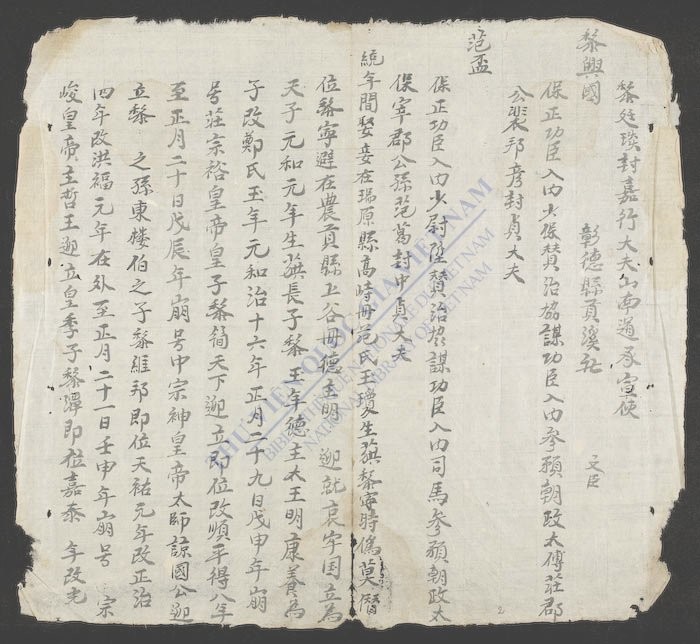 黎廷琰封嘉行大夫山南道承宣使
黎興國 彰德縣貢溪社 文臣
保正功臣入內少保贊治協謀功臣入內參預朝政太傅莊郡
公裴邦彥封貞大夫
范盃
保正功臣入內少尉 贊治協謀功臣入內司馬參預朝政太
保寧郡公孫范葛封中貞大夫
統年間娶妾在瑞原縣高峙冊范氏玉瓊生 黎寧時僞莫僭
位黎寧避在農貢縣上谷冊德主明 迎就哀牢国立為
天子元和元年生 長子黎玉年德主太王明康養為
子改鄭氏玉年元和治十六年正月二十九日戊申年崩
号莊宗裕皇帝皇子黎簡天下迎立即位改順平得八年
至正月二十日戊辰年崩号中宗神皇帝太師諒國公迎
立黎 之孫東楼伯之子黎維邦即位天祐元年改正治
四年改洪福元年在外至正月二十一日壬申年崩号 宗
峻皇帝主哲王迎立皇季子黎潭即位嘉泰 年改光
THU VIEN QUOC GIA VIET NAM
BIBLIOTHEQUE NATIONALE DU VIETNAM
NATIONAL LIBRARY OF VIETNAM